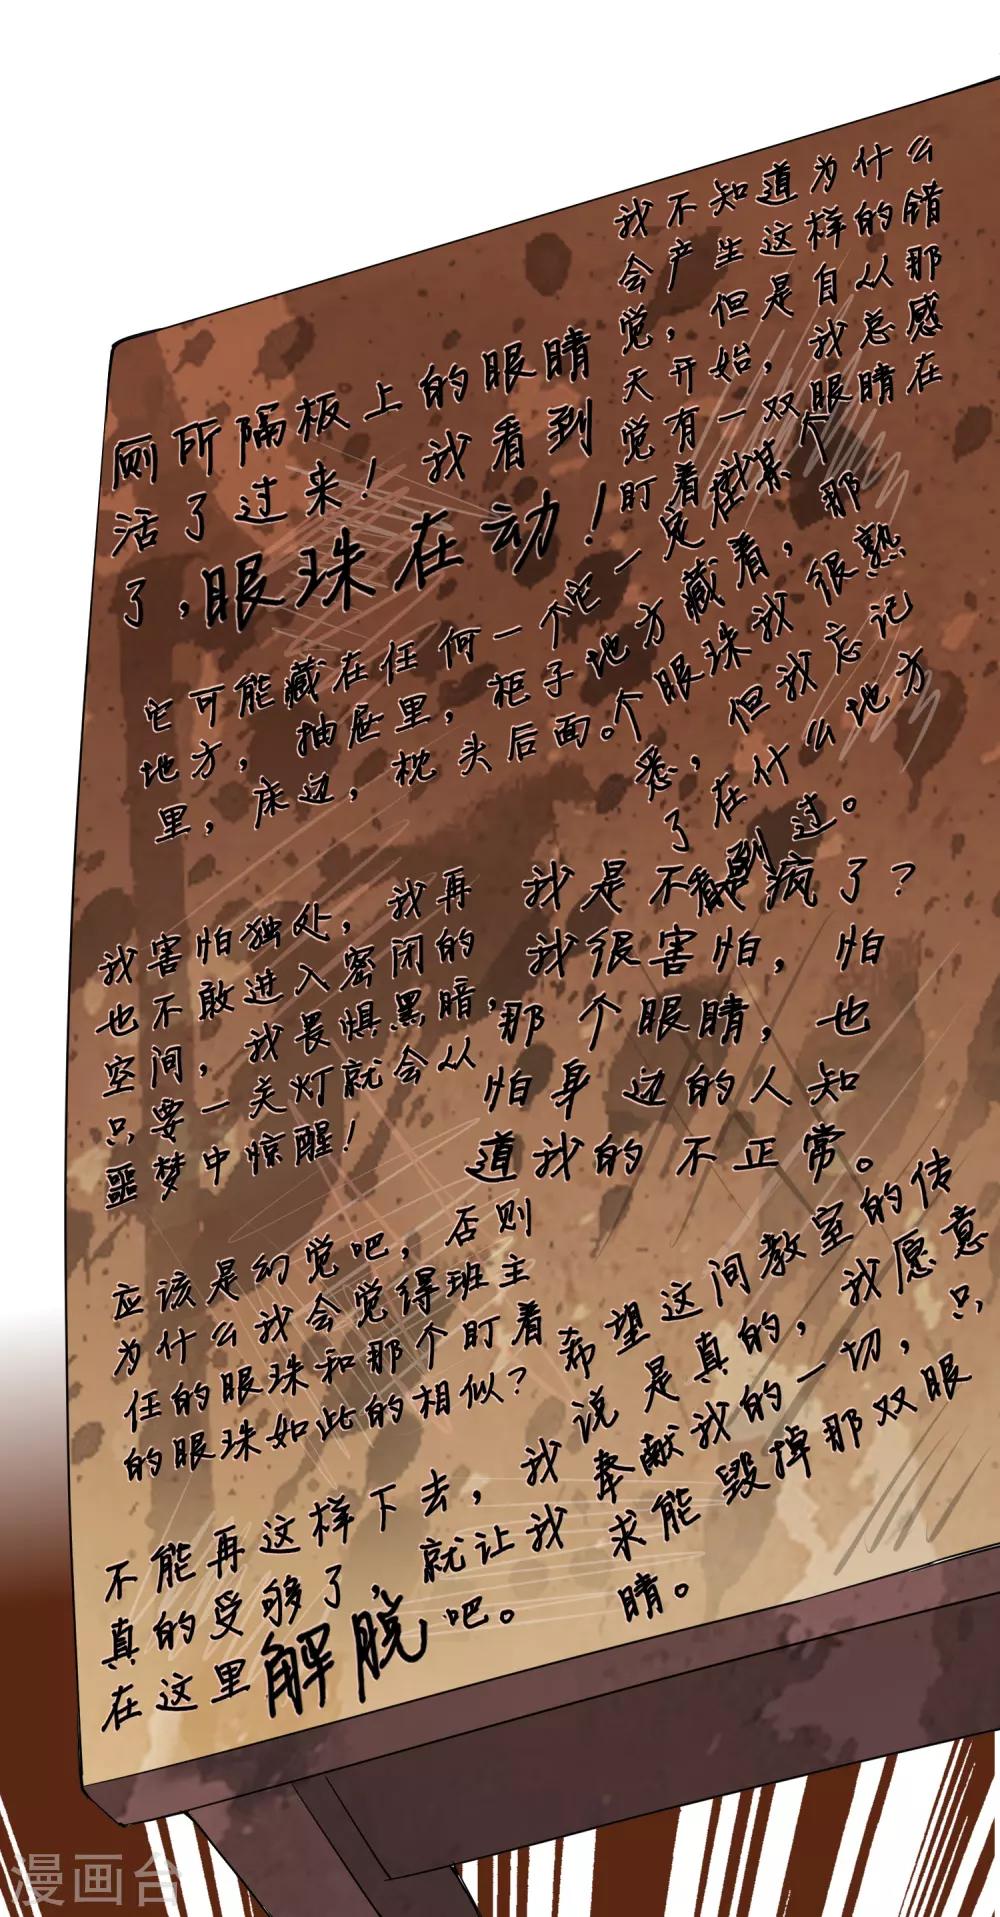 我不知道为什么
会产生这样的错
觉，但是自从那
天开始，我总感
觉有一双眼睛在
盯着我
厕所隔板上的眼睛
活了过来！我看到
了，眼珠在动！
它可能藏在任何一个
地方，抽屉里，柜子
里，床边，枕头后面。
它一定在某个
地方藏着，那
个眼珠我很熟
悉，但我忘记
了在什么地方
看到过。
我害怕独处，我再
也不敢进入密闭的
空间，我畏惧黑暗，
只要一关灯就会从
噩梦中惊醒！
我是不是疯了？
我很害怕，怕
那个眼睛，也
怕身边的人知
道我的不正常。
应该是幻觉吧，否则
为什么我会觉得班主
任的眼珠和那个盯着
的眼珠如此的相似？
希望这间教室的传
说是真的，我愿意
奉献我的一切，只
求能毁掉那双眼
睛。
不能再这样下去，我
真的受够了，就让我
在这里解脱吧。
漫画台